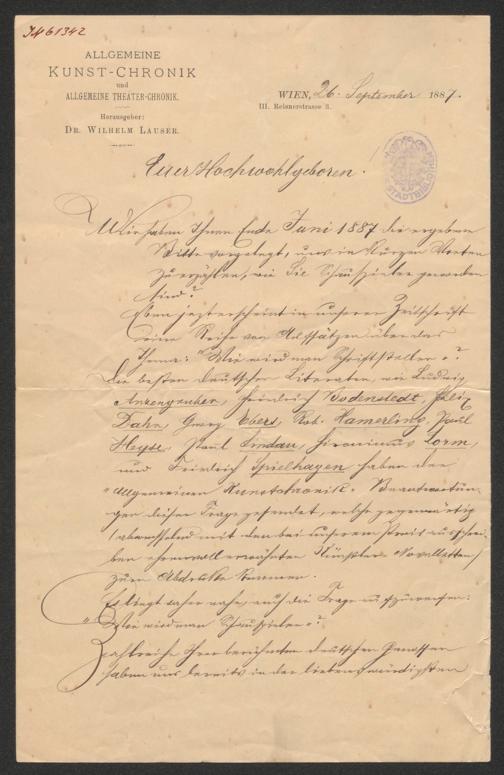 J461342
ALLGEMEINE
KUNST-CHRONIK
und
ALLGEMEINE THEATER-CHRONIK.
Herausgeber:
DR. WILHELM LAUSER.
WIEN, 26. September 1887.
III. Reisnerstrasse 3.
Euer Hochwohlgeboren!
Wir haben Ihnen Ende Juni 1887 die ergebene
Bitte vorgelegt, uns in kurzen Worten
zu erzählen, wie Sie Schauspieler geworden
sind?
Eben jetzt erscheint in unserer Zeitschrift
eine Reihe von Aufsätzen über das
Thema: "Wie wird man Schriftsteller?"
Die besten deutschen Literaten, wie Ludwig
Anzengruber, Friedrich Bodenstedt, Felix
Dahn, Georg Ebers, Rob. Hamerling, Paul
Heyse, Paul Lindau, Hieronimus Lorm,
und Friedrich Spielhagen haben der
"Allgemeinen Kunstchronik" Beantwortun-
gen dieser Frage gesendet, welche gegenwärtig
(abwechselnd mit den bei unserem Preisausschrei-
ben ehrenvoll erwähnten Künstler-Novelletten)
zum Abdrucke kommen.
Es liegt daher nahe, auch die Frage aufzuwerfen:
"Wie wird man Schauspieler?"
Zahlreiche Ihrer berühmten deutschen Genossen
haben uns bereits in der liebenswürdigsten